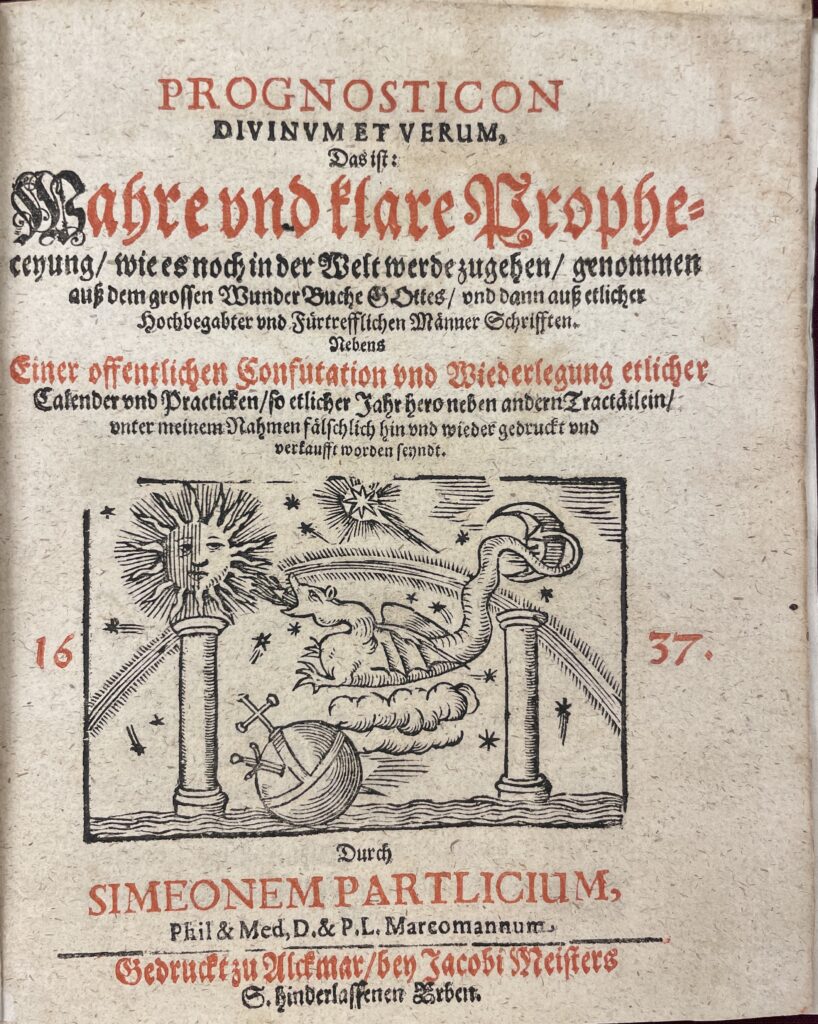 PROGNOSTICON
DIVINVM ET VERUM,
Das ist:
Wahre vnd klare Prophe=
ceyung/ wie es noch in der Welt werde zugehen/ genommen
auß dem grossen Wunder Buche GOttes/ vnd dann auß etlicher
Hochbegabter vnd Fürtrefflichen Männer Schrifften.
Nebens
Einer offentlichen Confutation vnd Wiederlegung etlicher
Calender vnd Practicken/ so etlicher Jahr hero neben andern Tractätlein/
vnter meinem Nahmen fälschlich hin vnd wieder gedruckt vnd
verkaufft worden seyndt.
16 37.
Durch
SIMEONEM PARTLICIUM,
Phil & Med, D. & P. L. Marcomannum.
Gedruckt zu Alckmar/ bey Jacobi Meisters
S. hinderlassenen Erben.